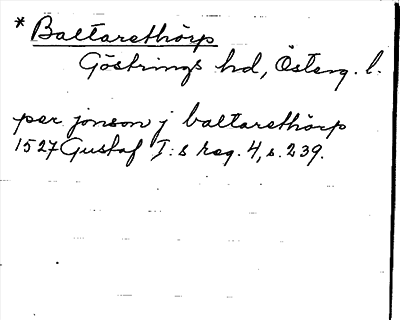 * Baltarethörp
Göstrings hd, Österg. l.
per jonson j baltarethörp
1527 Gustaf I:s reg. 4, s. 239.